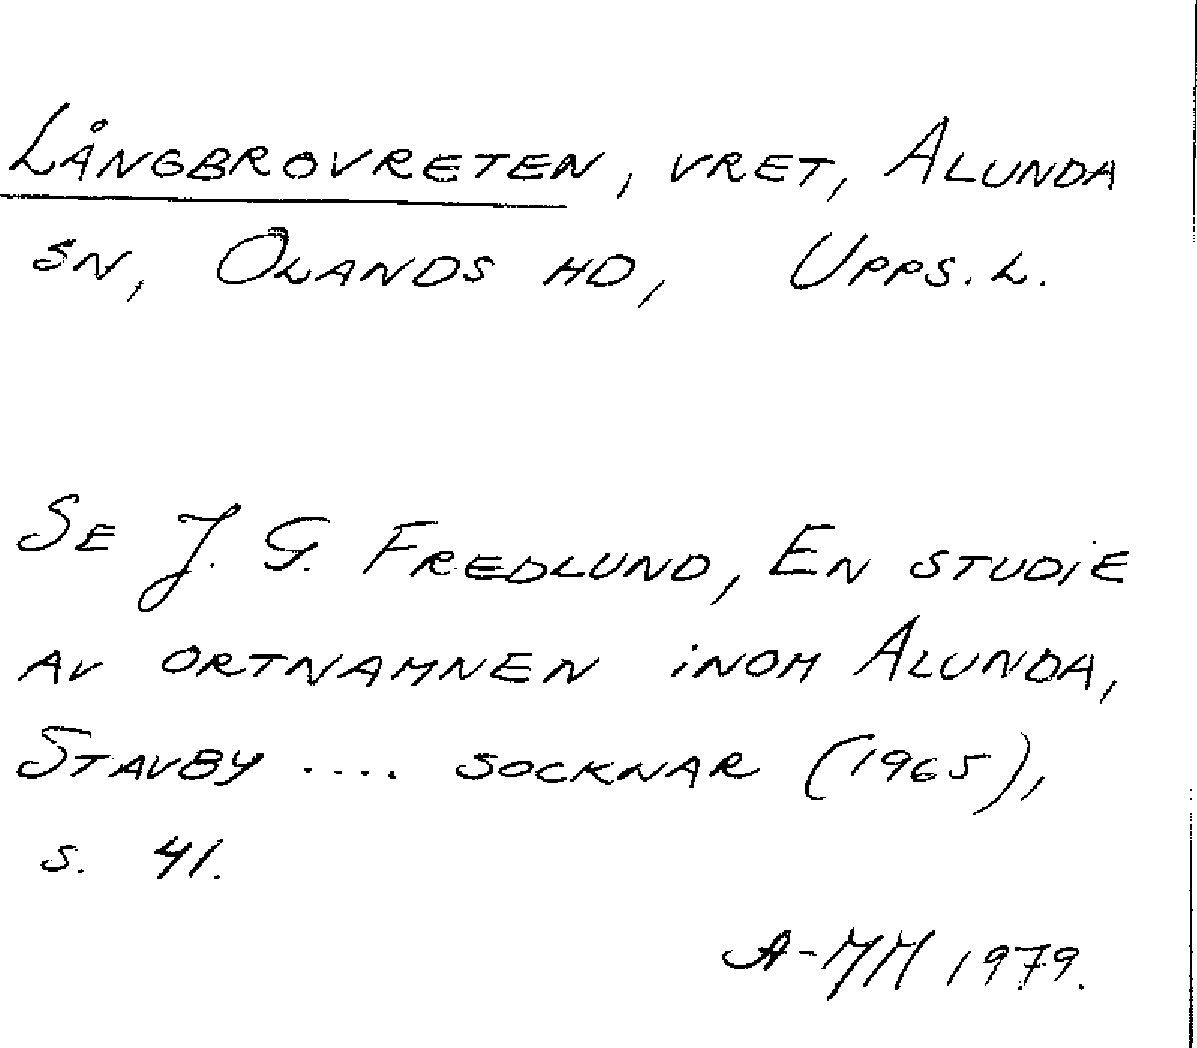 LÅNGBROVRETEN, VRET, ALUNDA
SN, OLANDS HD, UPPS. L.
SE J. G. FREDLUND, EN STUDIE
AV ORTNAMNEN INOM ALUNDA,
STAVBY .... SOCKNAR (1965),
S. 41.
A-MM 1979.